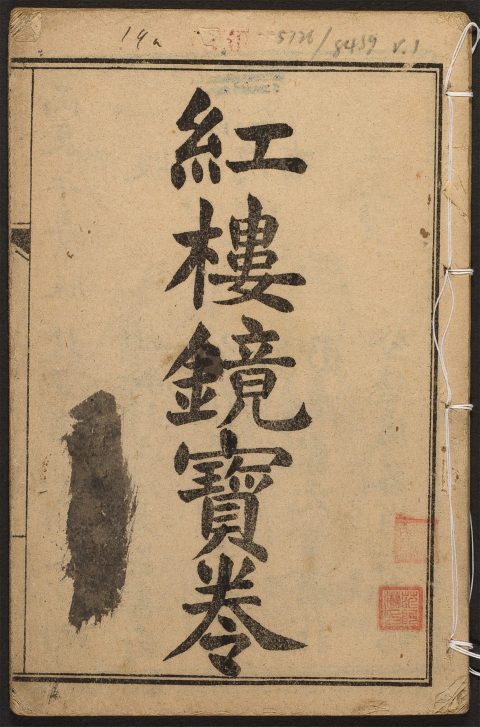 14a 5726/8439 v.1
紅樓鏡寶卷